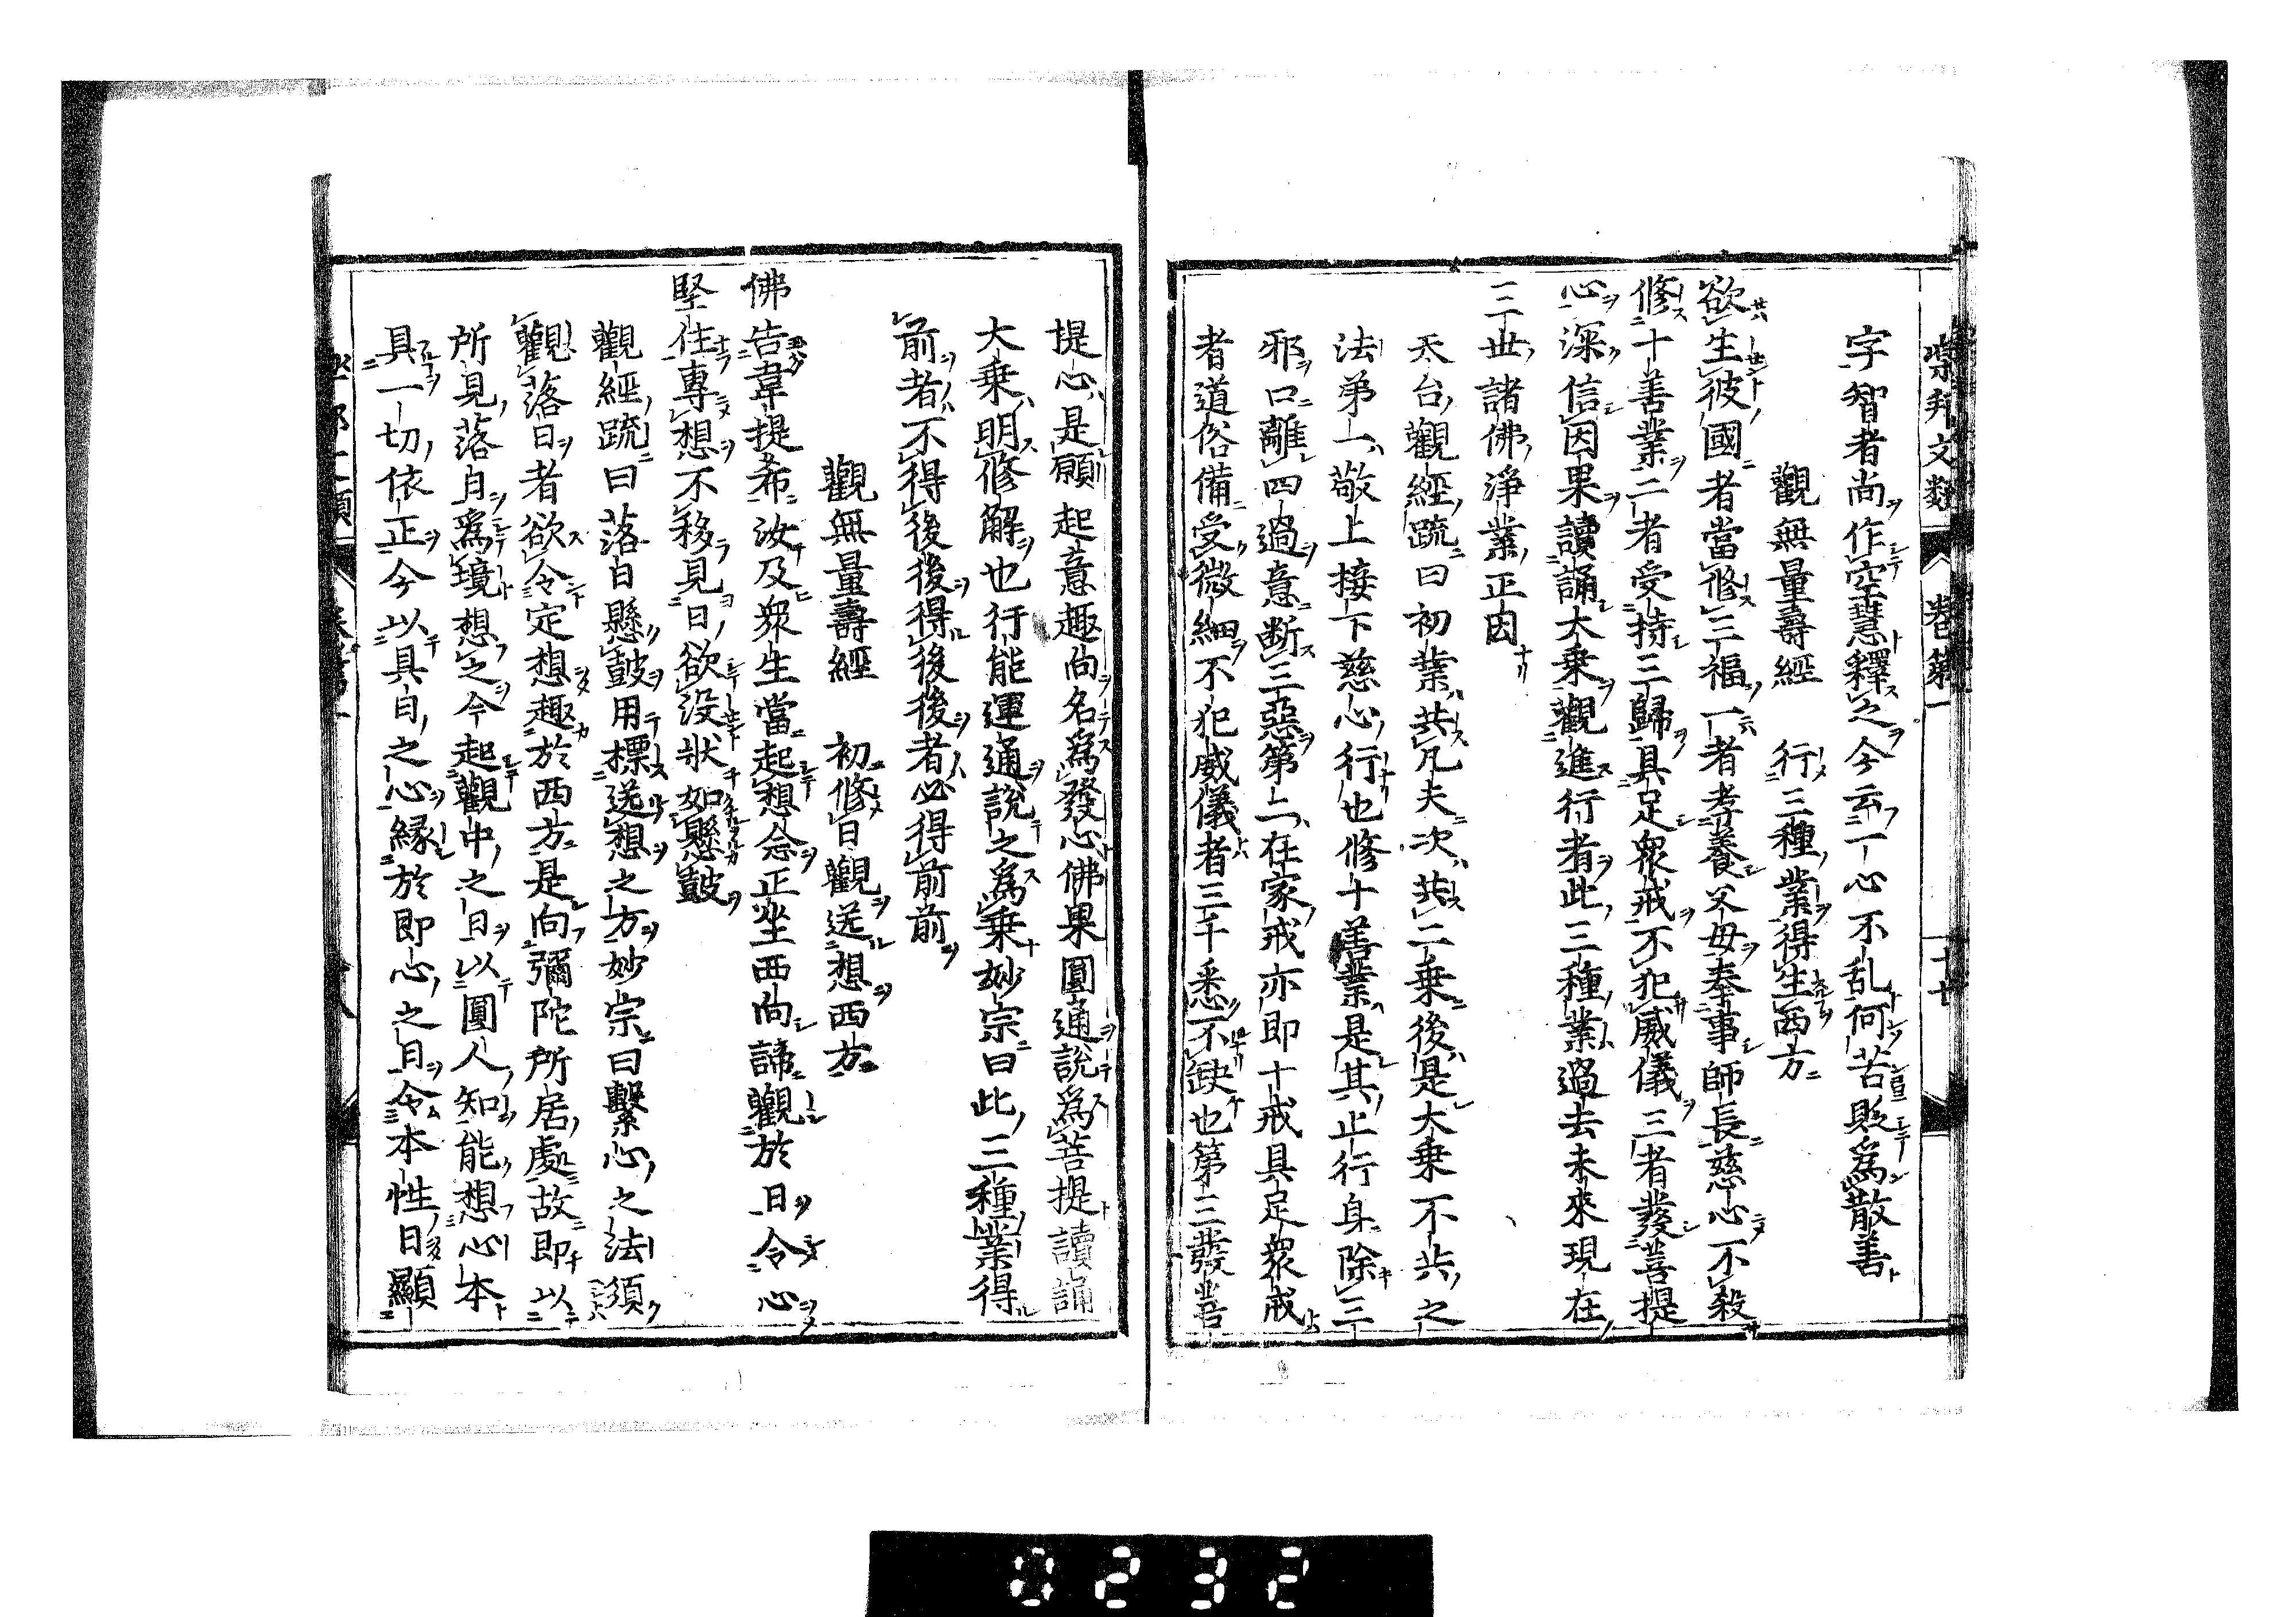 樂邦文類 卷第一 十七
字智者尚作空慧釋之今云一心不乱何苦貶爲散善
觀無量壽經 行三種業得生西方
欲生彼國者當修三福一者孝養父母奉事師長慈心不殺
修十善業二者受持三歸具足衆戒不犯威儀三者發菩提
心深信因果讀誦大乗觀進行者此三種業過去未來現在
三世諸佛淨業正因
天台觀經䟽曰初業共凡夫次共二乗後是大乗不共之
法第一敬上接下慈心行也修十善業是其止行身除三
邪口離四過意断三惡第二在家戒亦即十戒具足衆戒
者道俗備受微細不犯威儀者三千悉不缺也第三發菩
提心是願起意趣向名爲發心佛果圓通說爲菩提讀誦
大乗明修解也行能運通說之爲乗妙宗曰此三種業得
前者不得後後得後後者必得前前
觀無量壽經 初修日觀送想西方
佛告韋提希汝及衆生當起想念正坐西向諦觀於日令心
堅住專想不移見日欲没狀如懸鼓
觀經䟽曰落日懸鼓用標送想之方妙宗曰繫心之法須
觀落日者欲令定想趣於西方是向彌陀所居處故即以
所見落日爲境想之今起觀中之日以圓人知能想心本
具一切依正今以具日之心緣於即心之日令本性日顯